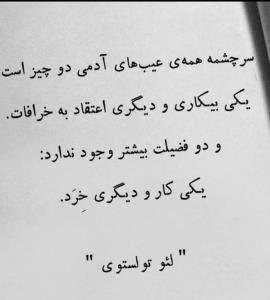 سرچشمه همه‌ی عیب‌های آدمی دو چیز است
یکی بیکاری و دیگری اعتقاد به خرافات.
و دو فضیلت بیشتر وجود ندارد:
یکی کار و دیگری خِرَد.
" لئو تولستوی "